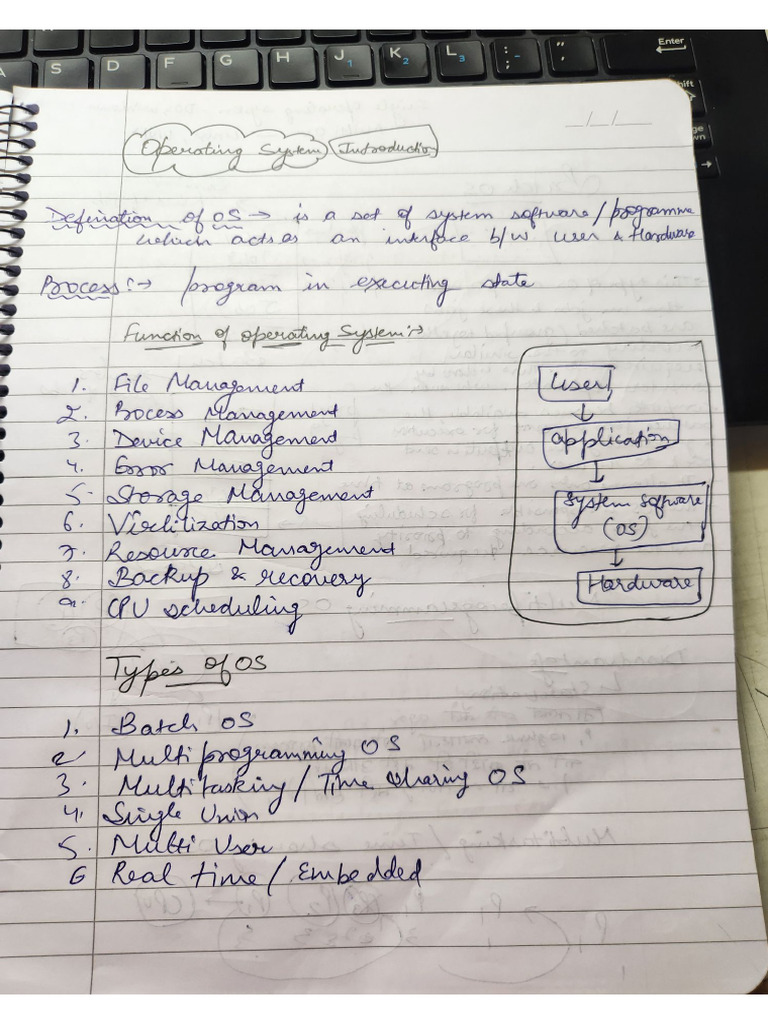 Operating System Introduction
Defination of OS → is a set of system software/programme
which acts as an interface b/w user & Hardware
Process :→ program in executing state
Function of operating System :→
1. File Management
2. Process Management
3. Device Management
4. Error Management
5. Storage Management
6. Virlilization
7. Resource Management
8. Backup & recovery
9. CPU scheduling
User
application
System Software
(OS)
Hardware
Types of OS
1. Batch OS
2 Multiprogramming OS
3. Multitasking / Time sharing OS
4. Single Union
5. Multi User
6 Real time / Embedded
A S D F G H J 1 K 2 L 3 : ; " ' Enter